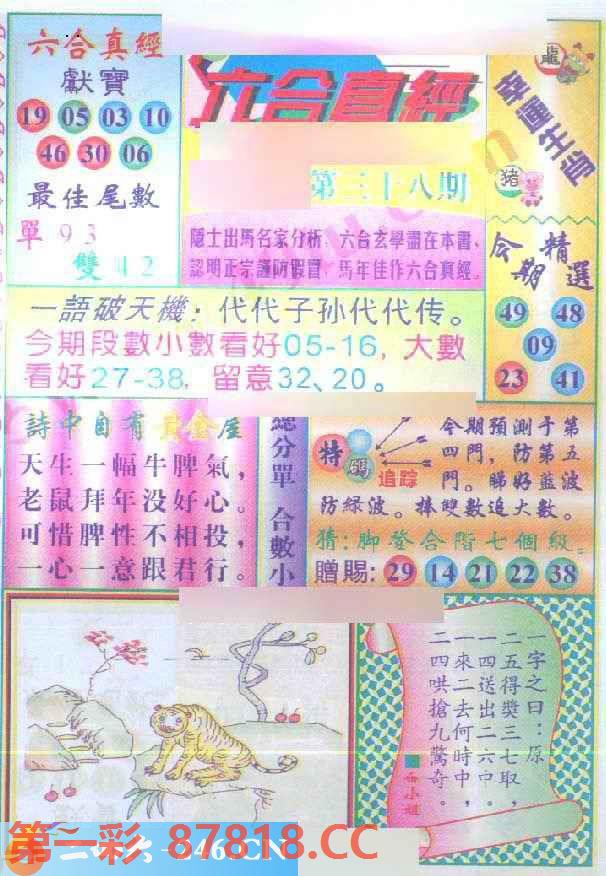 六合真經
獻寶
19 05 03 10
46 30 06
最佳尾數
單 9 3
雙 4 2
六合真經
第三十八期
隱士出馬名家分析，六合玄學盡在本書、
認明正宗謹防假冒，馬年佳作六合真經。
龍
幸運生肖
猪
今期精選
49 48
09
23 41
一語破天機：代代子孙代代传。
今期段數小數看好05-16，大數
看好27-38，留意32、20。
詩中自有黃金屋
天生一幅牛脾氣，
老鼠拜年没好心。
可惜脾性不相投，
一心一意跟君行。
總分單 合數小
特碼
追踪
今期預測于第
四門，防第五
門。睇好藍波
防緑波。捧雙數追大數。
猜：脚登合階七個級。
贈賜：29 14 21 22 38
一字之曰：原
二五得獎三七取，
一四送出二六中。
一來二去何時中，
二四哄搶九驚奇。
小姐
第一彩 87818.CC
246.CN